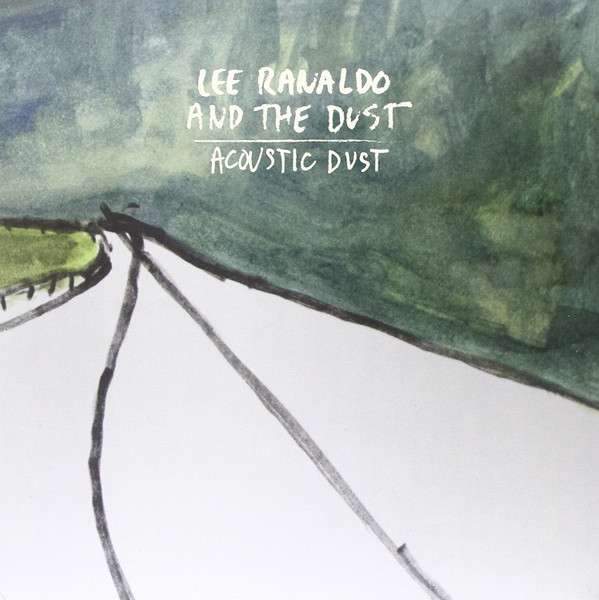 LEE RANALDO
AND THE DUST
ACOUSTIC DUST